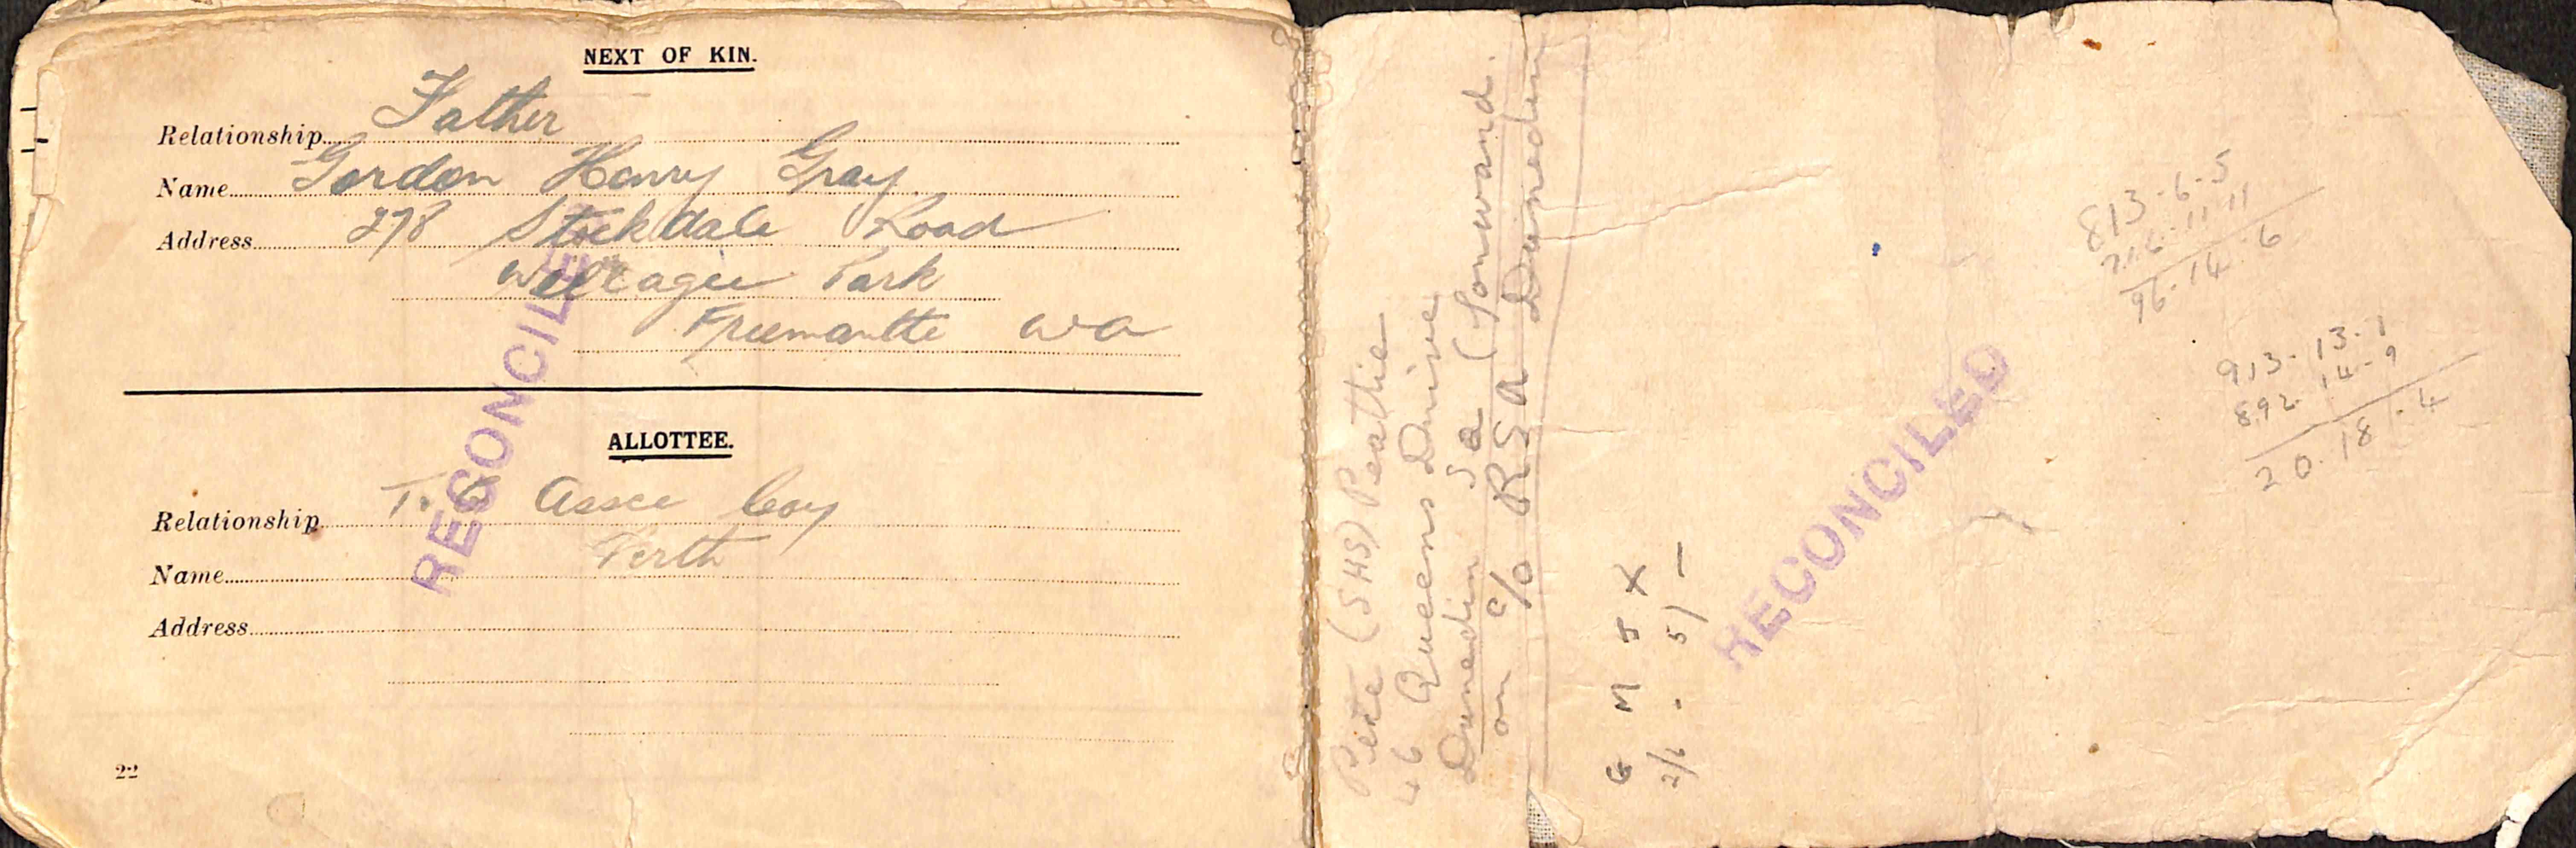 NEXT OF KIN.
Relationship Father
Name Gordon Henry Gray
Address 278 Stockdale Road
Willagee Park
Fremantle WA
RECONCILED
ALLOTTEE.
Relationship T. & G Assce Coy
Perth
Name
Address
22
Pete (SHS) Peattie
46 Queens Drive
Dunedin Sa (
on c/o RSA Dunedin
G M J X
2/6 - 5/ -
RECONCILED
813-6-5
716-11-11
96-14-6
913-13-1
892-14-9
20.18.4